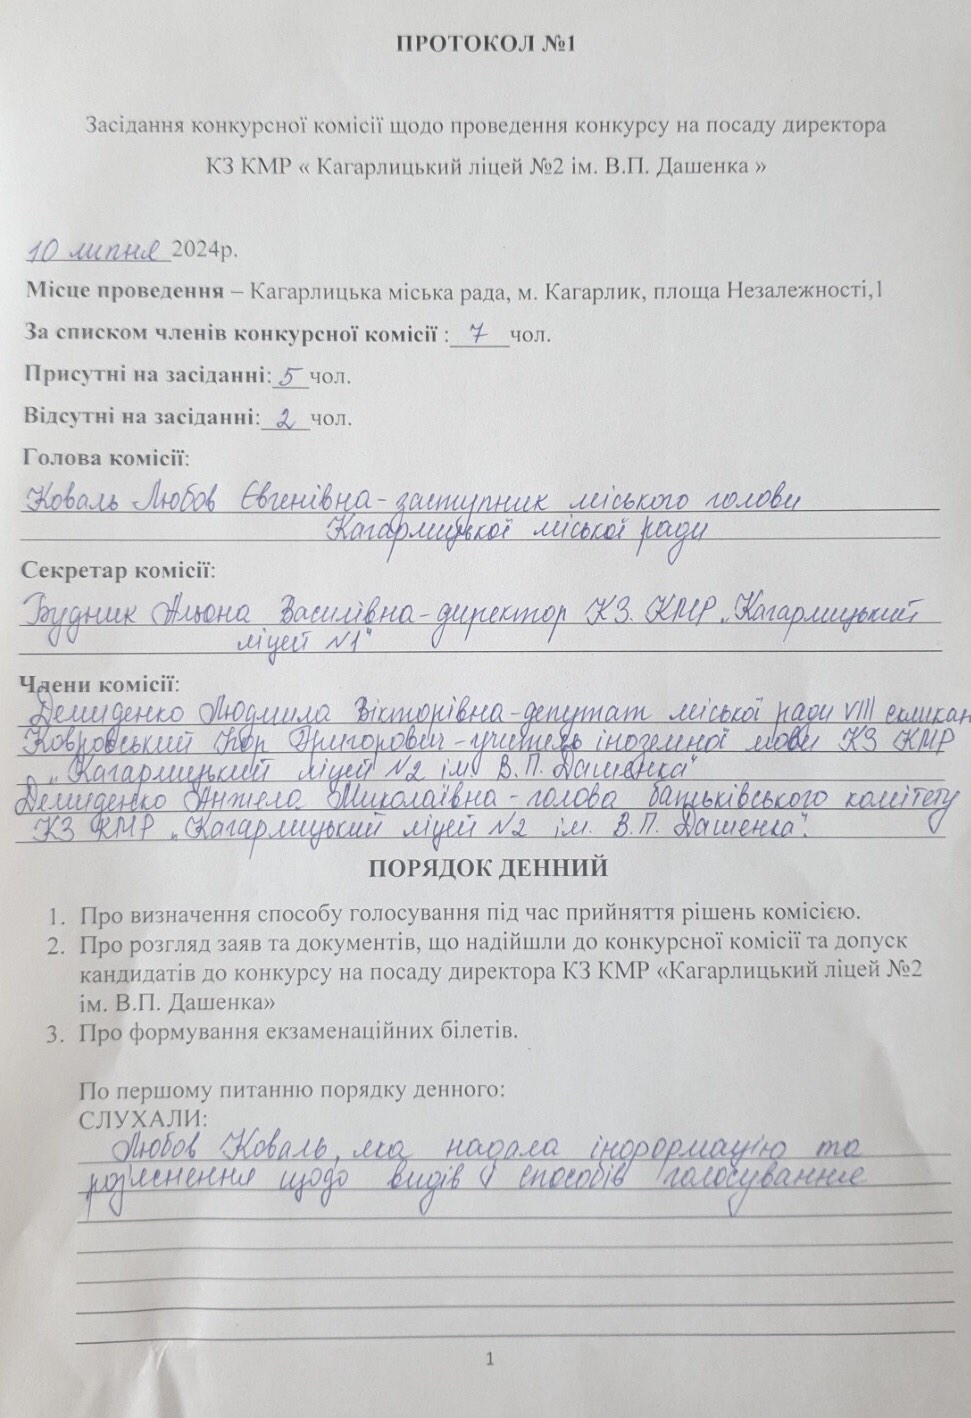 ПРОТОКОЛ №1
Засідання конкурсної комісії щодо проведення конкурсу на посаду директора
КЗ КМР « Кагарлицький ліцей №2 ім. В.П. Дашенка »
10 липня 2024р.
Місце проведення – Кагарлицька міська рада, м. Кагарлик, площа Незалежності,1
За списком членів конкурсної комісії : 7 чол.
Присутні на засіданні: 5 чол.
Відсутні на засіданні: 2 чол.
Голова комісії:
Коваль Любов Євгенівна - заступник міського голови
Кагарлицької міської ради
Секретар комісії:
Будник Альона Василівна - директор КЗ. КМР „Кагарлицький
ліцей №1"
Члени комісії:
Демиденко Людмила Вікторівна - депутат міської ради VIII скликан
Ковровський Ігор Григорович - учитель іноземної мови КЗ КМР
„Кагарлицький ліцей №2 ім. В.П. Дашенка"
Демиденко Анжела Миколаївна - голова батьківського комітету
КЗ КМР „Кагарлицький ліцей №2 ім. В.П. Дашенка".
ПОРЯДОК ДЕННИЙ
1. Про визначення способу голосування під час прийняття рішень комісією.
2. Про розгляд заяв та документів, що надійшли до конкурсної комісії та допуск
кандидатів до конкурсу на посаду директора КЗ КМР «Кагарлицький ліцей №2
ім. В.П. Дашенка»
3. Про формування екзаменаційних білетів.
По першому питанню порядку денного:
СЛУХАЛИ:
Любов Коваль, яка надала інформацію та
роз'яснення щодо видів і способів голосування
1